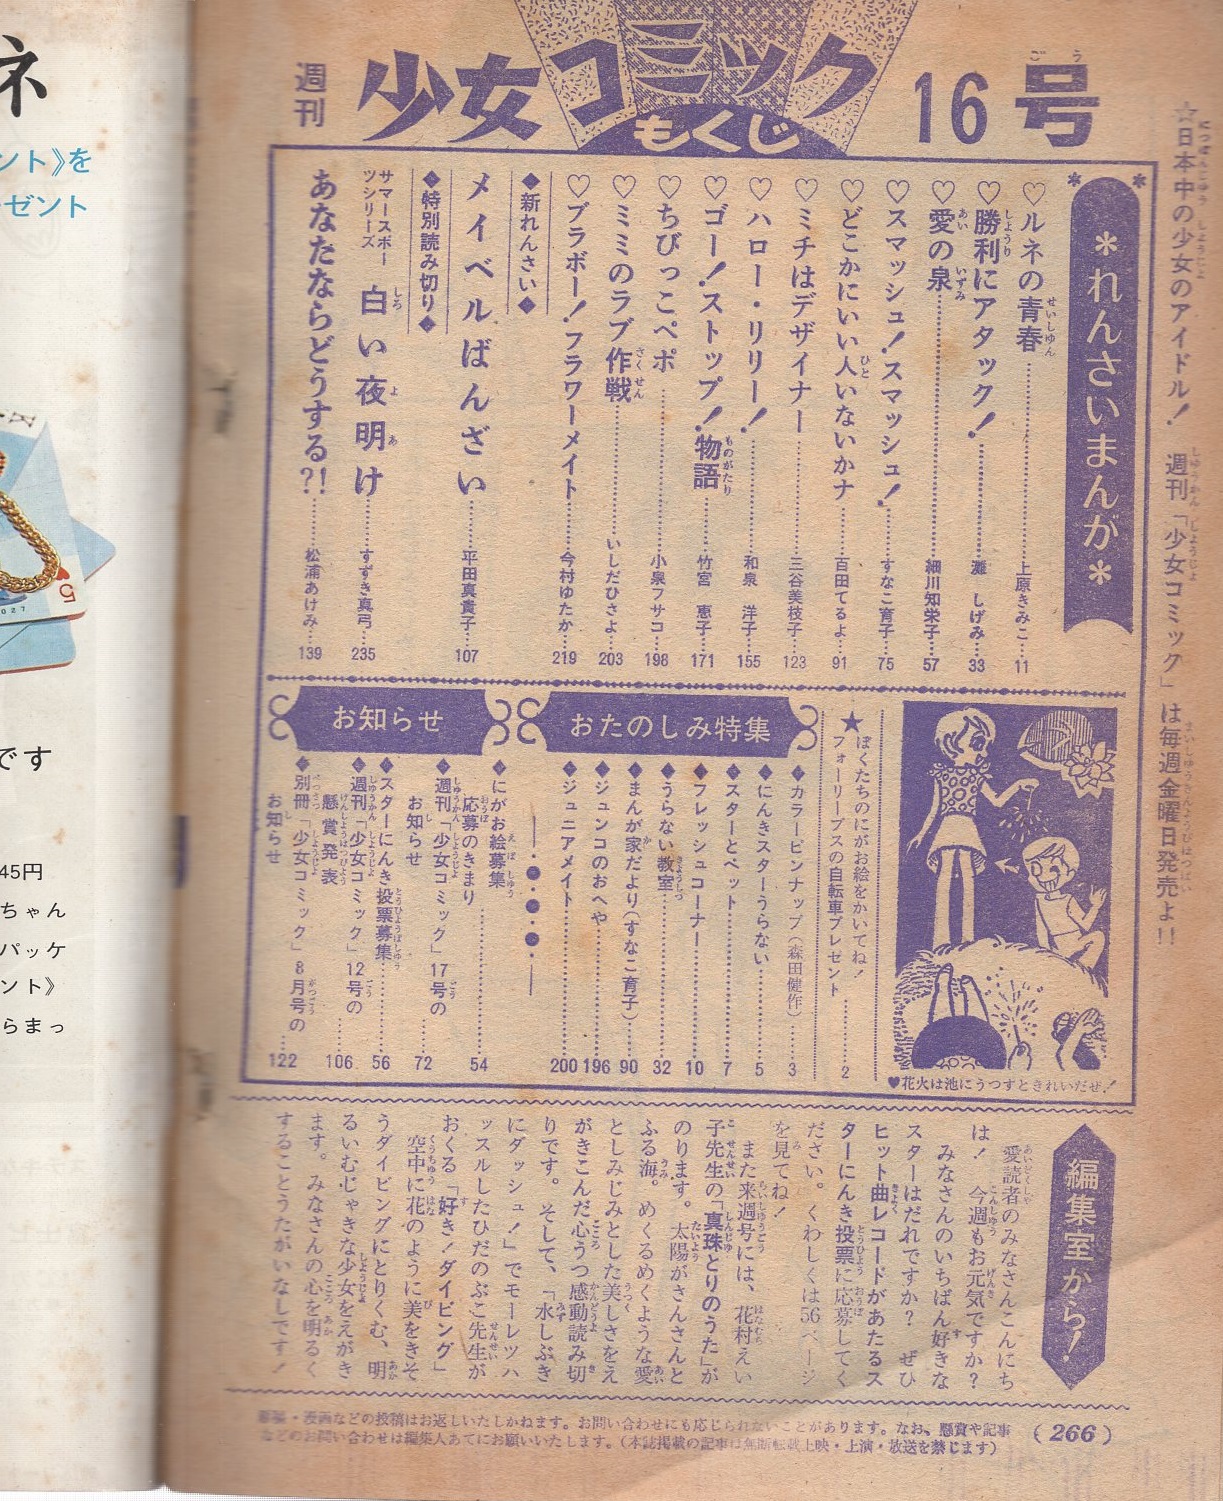 週刊
少女コミック
もくじ
16号
☆日本中の少女のアイドル！ 週刊「少女コミック」は毎週金曜日発売よ!!
＊れんさいまんが＊
♡ルネの青春……上原きみこ…11
♡勝利にアタック！……灘 しげみ…33
♡愛の泉……細川知栄子…57
♡スマッシュ！スマッシュ！……すなこ育子…75
♡どこかにいい人いないかナ……百田てるよ…91
♡ミチはデザイナー……三谷美枝子…123
♡ハロー・リリー！……和泉 洋子…155
♡ゴー！ストップ！物語……竹宮 恵子…171
♡ちびっこペポ……小泉フサコ…198
♡ミミのラブ作戦……いしだひさよ…203
♡ブラボー！フラワーメイト……今村ゆたか…219
◆新れんさい◆
メイベルばんざい……平田真貴子…107
◆特別読み切り◆
サマースポーツシリーズ 白い夜明け……すずき真弓…235
あなたならどうする?!……松浦あけみ…139
♥花火は池にうつすときれいだぜ！
★ぼくたちのにがお絵をかいてね！
フォーリーブスの自転車プレゼント……2
おたのしみ特集
◆カラーピンナップ（森田健作）……3
◆にんきスターうらない……5
◆スターとペット……7
◆フレッシュコーナー……10
◆うらない教室……32
◆まんが家だより（すなこ育子）……90
◆ジュンコのおへや……196
◆ジュニアメイト……200
お知らせ
◆にがお絵募集
応募のきまり……54
◆週刊「少女コミック」17号の
お知らせ……72
◆スターにんき投票募集……56
◆週刊「少女コミック」12号の
懸賞発表……106
◆別冊「少女コミック」8月号の
お知らせ……122
編集室から！
愛読者のみなさんこんにち
は！ 今週もお元気ですか？
みなさんのいちばん好きな
スターはだれですか？ ぜひ
ヒット曲レコードがあたるス
ターにんき投票に応募してく
ださい。くわしくは56ページ
を見てね！
また来週号には、花村えい
子先生の「真珠とりのうた」が
のります。太陽がさんさんと
ふる海。めくるめくような愛
としみじみとした美しさをえ
がきこんだ心うつ感動読み切
りです。そして、「水しぶき
にダッシュ！」でモーレツハ
ッスルしたひだのぶこ先生が
おくる「好き！ダイビング」
空中に花のように美をきそ
うダイビングにとりくむ、明
るいむじゃきな少女をえがき
ます。みなさんの心を明るく
することうたがいなしです！
・漫画などの投稿はお返しいたしかねます。お問い合わせにも応じられないことがあります。なお、懸賞や記事
などのお問い合わせは編集人あてにお願いいたします。（本誌掲載の記事は無断転載上映・上演・放送を禁じます）
（266）
ネ
ント》を
ゼント
5
027
です
45円
ちゃん
パッケ
ント》
らまっ